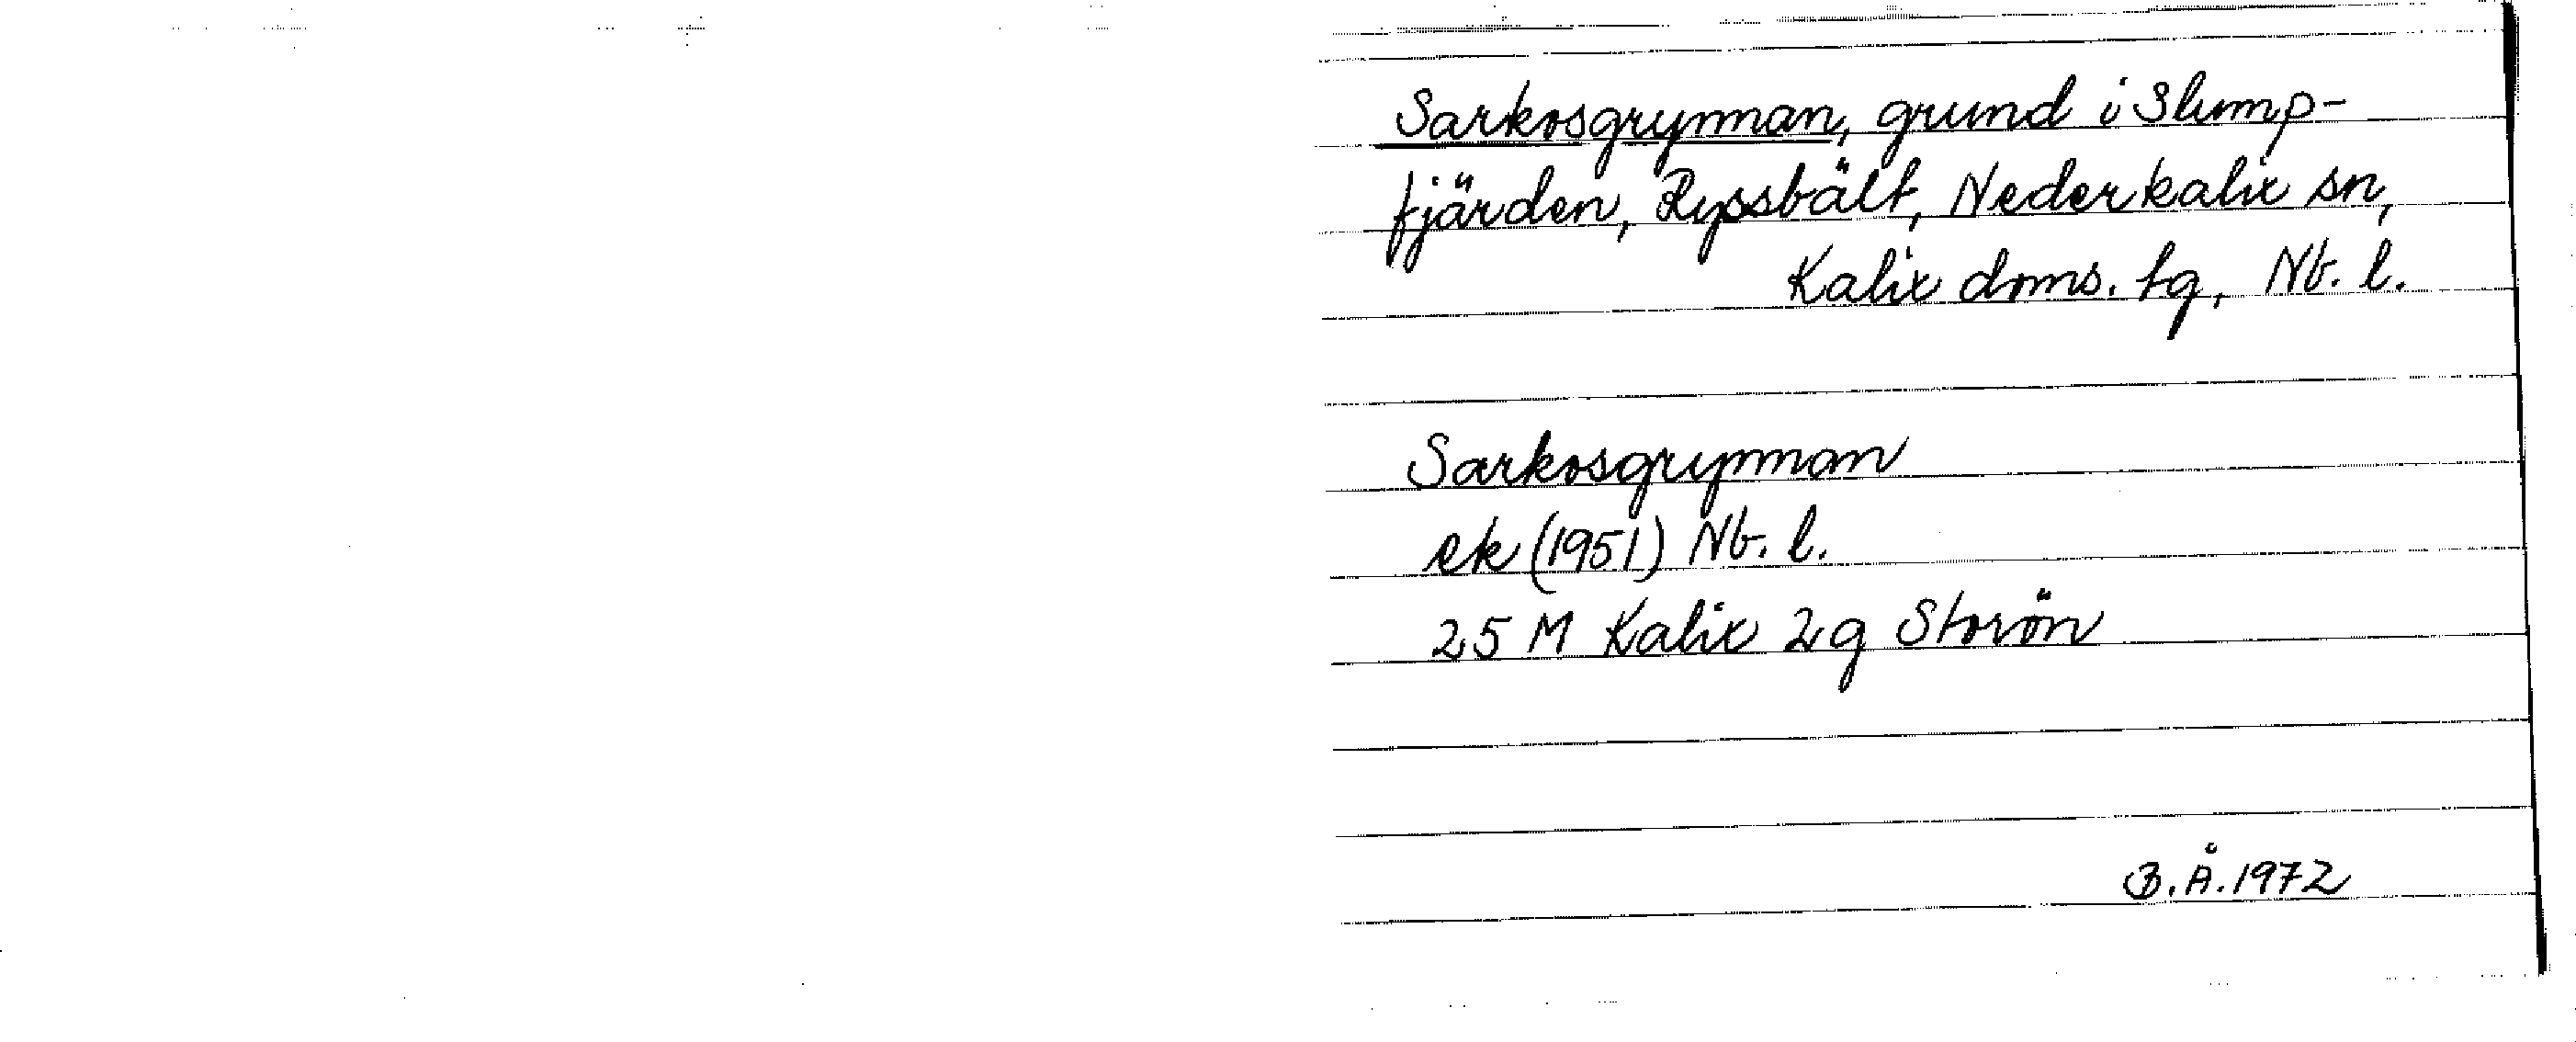 Sarkosgrynnan, grund i Slump-
fjärden, Ryssbält, Nederkalix sn,
Kalix doms. tg, Nb. l.
Sarkosgrynnan
ek (1951) Nb. l.
25 M Kalix 2g Storön
B.Å.1972